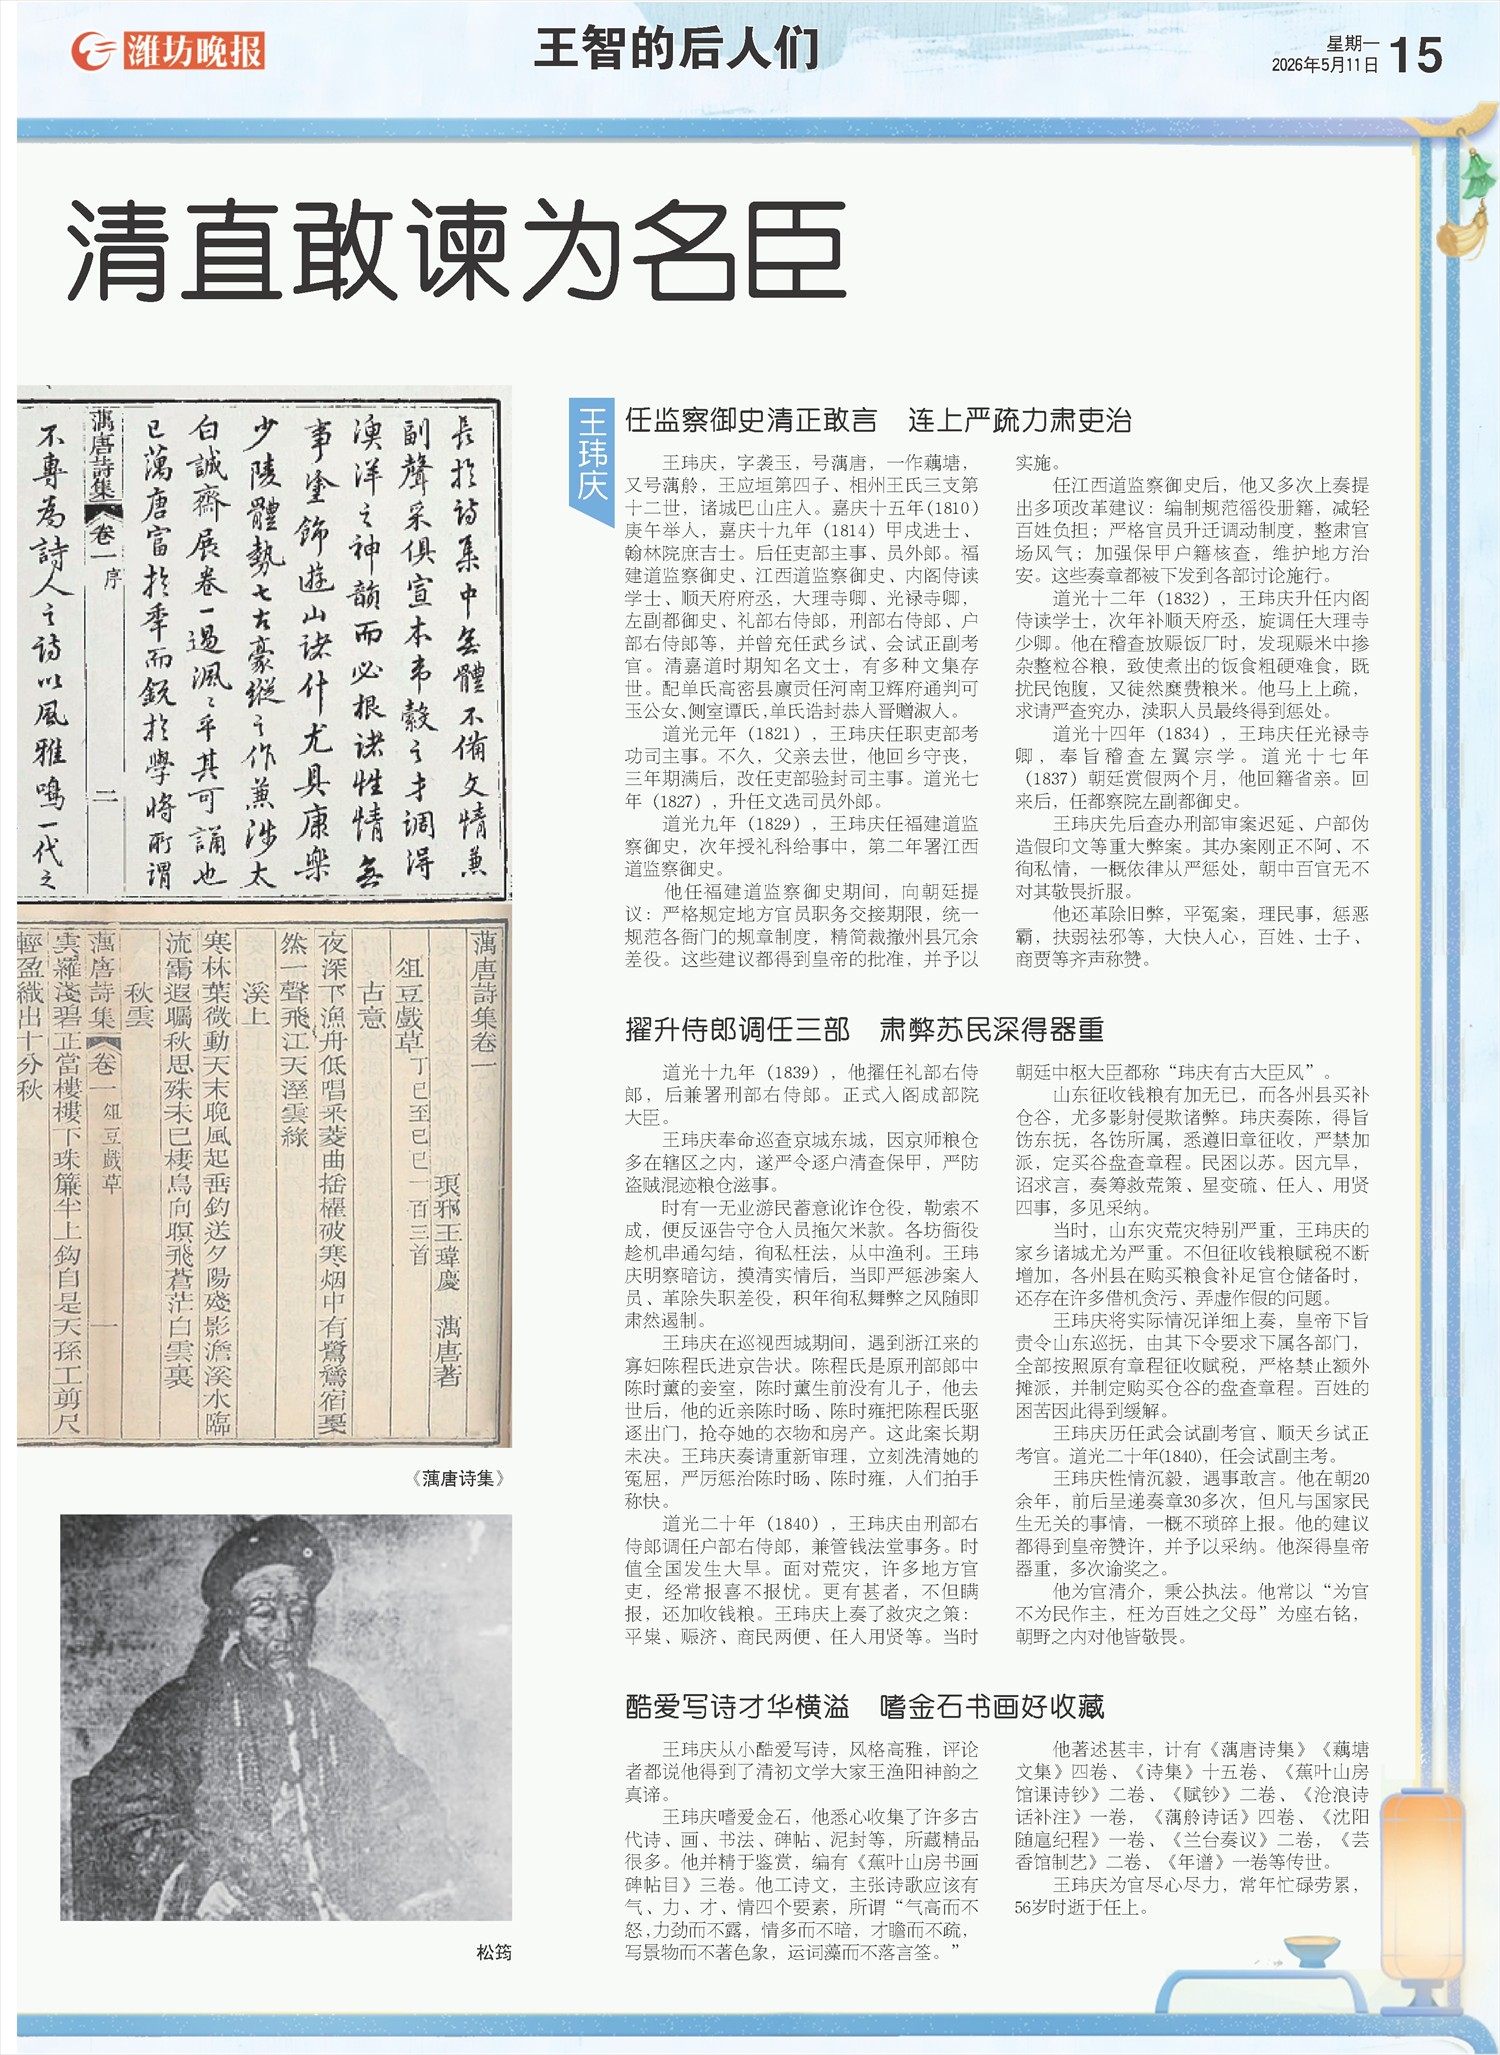 潍坊晚报
王智的后人们
星期一
2026年5月11日
15
清直敢谏为名臣
長於詩集中無體不備文情兼
副聲采俱宣本韦轂之才調得
漁洋之神韻而必根諸性情無
事塗飾遊山諸什尤具康樂
少陵體勢七古豪縱之作兼涉太
白誠齋展卷一過渢渢乎其可誦也
已蕅唐富於年而銳於學將所謂
蕅唐詩集
卷一
序
二
不專為詩人之詩以風雅鳴一代之
蕅唐詩集卷一
琅琊王瑋慶 蕅唐著
俎豆戲草 丁巳至己巳一百三首
古意
夜深下漁舟低唱釆菱曲搖櫂破寒烟中有鷺鷥宿戛
然一聲飛江天溼雲綠
溪上
寒林葉微動天末晚風起垂釣送夕陽殘影澹溪水臨
流霱遐矚秋思殊未已棲鳥向暝飛蒼茫白雲裏
秋雲
蕅唐詩集
卷一
俎豆戲草
一
雲羅淺碧正當樓樓下珠簾半上鈎自是天孫工剪尺
輕盈織出十分秋
《蕅唐诗集》
松筠
王玮庆
任监察御史清正敢言　连上严疏力肃吏治
王玮庆，字袭玉，号蕅唐，一作藕塘，
又号蕅舲，王应垣第四子、相州王氏三支第
十二世，诸城巴山庄人。嘉庆十五年(1810)
庚午举人，嘉庆十九年（1814）甲戌进士、
翰林院庶吉士。后任吏部主事、员外郎。福
建道监察御史、江西道监察御史、内阁侍读
学士、顺天府府丞，大理寺卿、光禄寺卿，
左副都御史、礼部右侍郎，刑部右侍郎、户
部右侍郎等，并曾充任武乡试、会试正副考
官。清嘉道时期知名文士，有多种文集存
世。配单氏高密县廪贡任河南卫辉府通判可
玉公女、侧室谭氏，单氏诰封恭人晋赠淑人。
道光元年（1821），王玮庆任职吏部考
功司主事。不久，父亲去世，他回乡守丧，
三年期满后，改任吏部验封司主事。道光七
年（1827），升任文选司员外郎。
道光九年（1829），王玮庆任福建道监
察御史，次年授礼科给事中，第二年署江西
道监察御史。
他任福建道监察御史期间，向朝廷提
议：严格规定地方官员职务交接期限，统一
规范各衙门的规章制度，精简裁撤州县冗余
差役。这些建议都得到皇帝的批准，并予以
实施。
任江西道监察御史后，他又多次上奏提
出多项改革建议：编制规范徭役册籍，减轻
百姓负担；严格官员升迁调动制度，整肃官
场风气；加强保甲户籍核查，维护地方治
安。这些奏章都被下发到各部讨论施行。
道光十二年（1832），王玮庆升任内阁
侍读学士，次年补顺天府丞，旋调任大理寺
少卿。他在稽查放赈饭厂时，发现赈米中掺
杂整粒谷粮，致使煮出的饭食粗硬难食，既
扰民饱腹，又徒然糜费粮米。他马上上疏，
求请严查究办，渎职人员最终得到惩处。
道光十四年（1834），王玮庆任光禄寺
卿，奉旨稽查左翼宗学。道光十七年
（1837）朝廷赏假两个月，他回籍省亲。回
来后，任都察院左副都御史。
王玮庆先后查办刑部审案迟延、户部伪
造假印文等重大弊案。其办案刚正不阿、不
徇私情，一概依律从严惩处，朝中百官无不
对其敬畏折服。
他还革除旧弊，平冤案，理民事，惩恶
霸，扶弱祛邪等，大快人心，百姓、士子、
商贾等齐声称赞。
擢升侍郎调任三部　肃弊苏民深得器重
道光十九年（1839），他擢任礼部右侍
郎，后兼署刑部右侍郎。正式入阁成部院
大臣。
王玮庆奉命巡查京城东城，因京师粮仓
多在辖区之内，遂严令逐户清查保甲，严防
盗贼混迹粮仓滋事。
时有一无业游民蓄意讹诈仓役，勒索不
成，便反诬告守仓人员拖欠米款。各坊衙役
趁机串通勾结，徇私枉法，从中渔利。王玮
庆明察暗访，摸清实情后，当即严惩涉案人
员、革除失职差役，积年徇私舞弊之风随即
肃然遏制。
王玮庆在巡视西城期间，遇到浙江来的
寡妇陈程氏进京告状。陈程氏是原刑部郎中
陈时薰的妾室，陈时薰生前没有儿子，他去
世后，他的近亲陈时旸、陈时雍把陈程氏驱
逐出门，抢夺她的衣物和房产。这此案长期
未决。王玮庆奏请重新审理，立刻洗清她的
冤屈，严厉惩治陈时旸、陈时雍，人们拍手
称快。
道光二十年（1840），王玮庆由刑部右
侍郎调任户部右侍郎，兼管钱法堂事务。时
值全国发生大旱。面对荒灾，许多地方官
吏，经常报喜不报忧。更有甚者，不但瞒
报，还加收钱粮。王玮庆上奏了救灾之策：
平粜、赈济、商民两便、任人用贤等。当时
朝廷中枢大臣都称“玮庆有古大臣风”。
山东征收钱粮有加无已，而各州县买补
仓谷，尤多影射侵欺诸弊。玮庆奏陈，得旨
饬东抚，各饬所属，悉遵旧章征收，严禁加
派，定买谷盘查章程。民困以苏。因亢旱，
诏求言，奏筹救荒策、星变疏、任人、用贤
四事，多见采纳。
当时，山东灾荒灾特别严重，王玮庆的
家乡诸城尤为严重。不但征收钱粮赋税不断
增加，各州县在购买粮食补足官仓储备时，
还存在许多借机贪污、弄虚作假的问题。
王玮庆将实际情况详细上奏，皇帝下旨
责令山东巡抚，由其下令要求下属各部门，
全部按照原有章程征收赋税，严格禁止额外
摊派，并制定购买仓谷的盘查章程。百姓的
困苦因此得到缓解。
王玮庆历任武会试副考官、顺天乡试正
考官。道光二十年(1840)，任会试副主考。
王玮庆性情沉毅，遇事敢言。他在朝20
余年，前后呈递奏章30多次，但凡与国家民
生无关的事情，一概不琐碎上报。他的建议
都得到皇帝赞许，并予以采纳。他深得皇帝
器重，多次谕奖之。
他为官清介，秉公执法。他常以“为官
不为民作主，枉为百姓之父母”为座右铭，
朝野之内对他皆敬畏。
酷爱写诗才华横溢　嗜金石书画好收藏
王玮庆从小酷爱写诗，风格高雅，评论
者都说他得到了清初文学大家王渔阳神韵之
真谛。
王玮庆嗜爱金石，他悉心收集了许多古
代诗、画、书法、碑帖、泥封等，所藏精品
很多。他并精于鉴赏，编有《蕉叶山房书画
碑帖目》三卷。他工诗文，主张诗歌应该有
气、力、才、情四个要素，所谓“气高而不
怒，力劲而不露，情多而不暗，才瞻而不疏，
写景物而不著色象，运词藻而不落言筌。”
他著述甚丰，计有《蕅唐诗集》《藕塘
文集》四卷、《诗集》十五卷、《蕉叶山房
馆课诗钞》二卷、《赋钞》二卷、《沧浪诗
话补注》一卷，《蕅舲诗话》四卷、《沈阳
随扈纪程》一卷、《兰台奏议》二卷，《芸
香馆制艺》二卷、《年谱》一卷等传世。
王玮庆为官尽心尽力，常年忙碌劳累，
56岁时逝于任上。